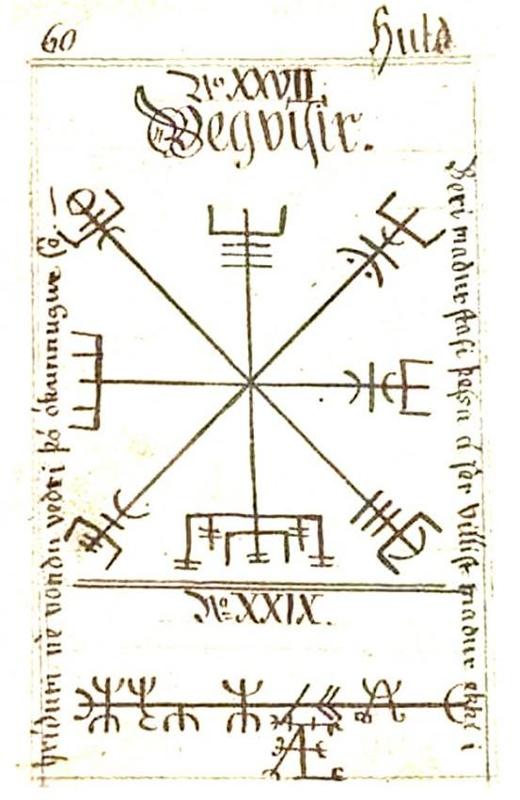 60
Huld
No XXVII.
Vegvísir.
Beri madur stafi þessa á sér villist madur ekki í
hríðum né vondu vedri þó ókunnugur sé.
No XXIX.